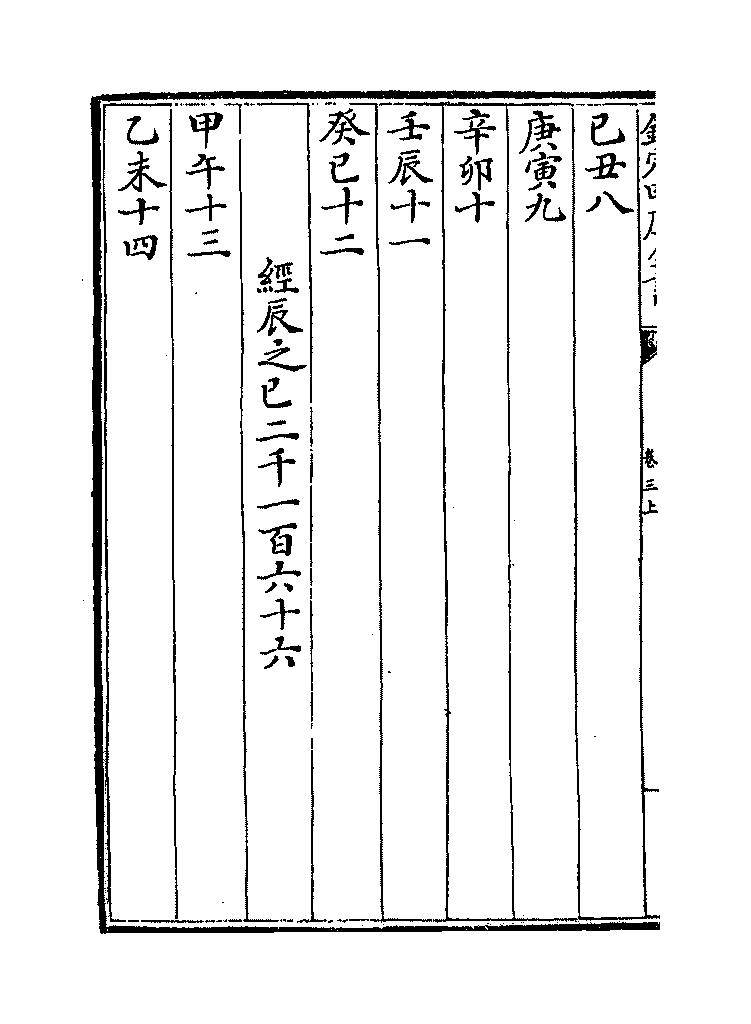 欽定四庫全書
卷三上
己丑八
庚寅九
辛卯十
壬辰十一
癸巳十二
經辰之巳二千一百六十六
甲午十三
乙未十四